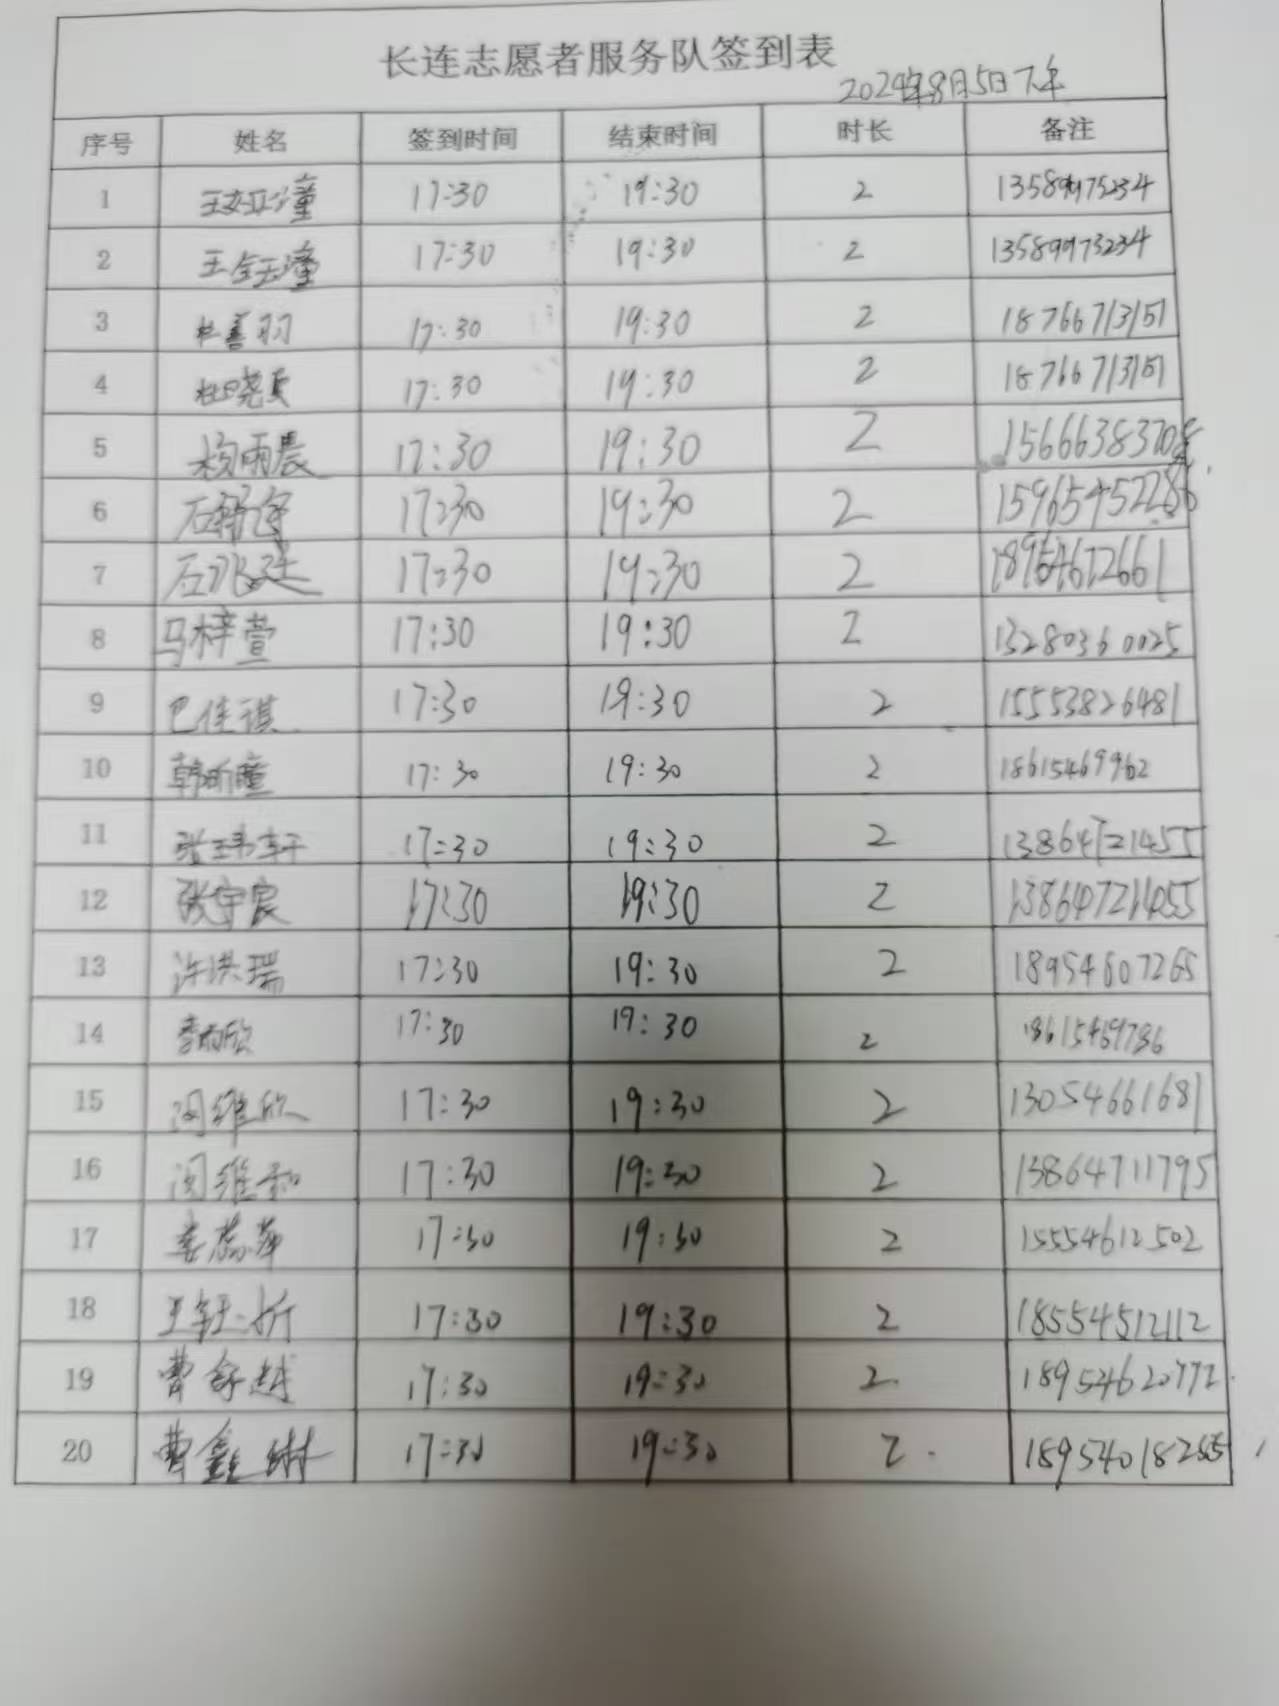 长连志愿者服务队签到表
2024年8月5日下午
序号 姓名 签到时间 结束时间 时长 备注
1 17:30 19:30 2
2 17:30 19:30 2 13589973234
3 杜善羽 17:30 19:30 2 18766713151
4 杜晓夏 17:30 19:30 2 18766713151
5 杨雨晨 17:30 19:30 2
6 17:30 19:30 2 15965452286
7 17:30 19:30 2 18954672661
8 马梓萱 17:30 19:30 2 13280360025
9 巴佳琪 17:30 19:30 2 15553826481
10 韩昕瞳 17:30 19:30 2 18615469962
11 张玮轩 17:30 19:30 2 13864721455
12 张宇宸 17:30 19:30 2
13 许洪瑞 17:30 19:30 2 18954607265
14 李雨欣 17:30 19:30 2 18615469786
15 闵维欣 17:30 19:30 2 13054661681
16 闵维和 17:30 19:30 2 13864711795
17 17:30 19:30 2 15554612502
18 17:30 19:30 2 18554512112
19 曹舒越 17:30 19:30 2 18954620772
20 曹鑫 17:30 19:30 2